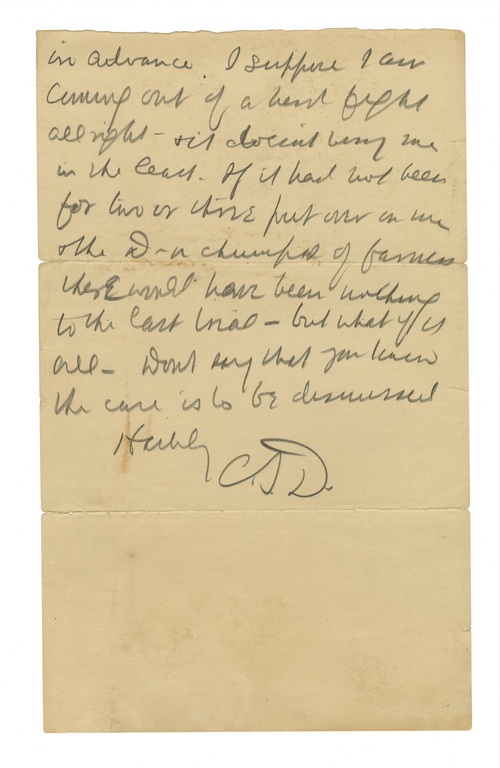 in advance. I suppose I am
coming out of a hard fight
allright - & it doesnt worry me
in the least. If it had not been
for two or three put over on me
& the D-n of fairness
there would have been nothing
to the last trial - but what of it
all - Dont say that you know
the case is to be dismissed
Hastily
C.S.D.